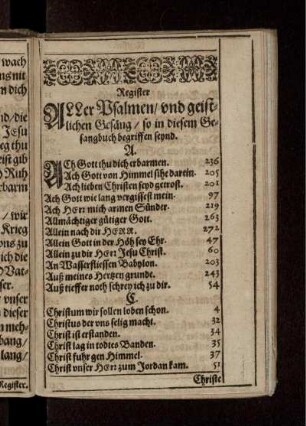 wach
ns nit
n dich
nd/die
Jesu
eg thu
ist gib
d Ruh
rbarm
/ wir
Krieg
ons zu
ich die
Vat-
ser.
/ vnser
dieser
n meh-
bang/
lang/
Register.
Register
ALLer Psalmen/ vnd geist-
lichen Gesäng/ so in diesem Ge-
sangbuch begriffen seynd.
A.
ACh Gott thu dich erbarmen. 236
Ach Gott vom Himmel sihe darein. 205
Ach lieben Christen seyd getrost. 201
Ach Gott wie lang vergissest mein. 97
Ach HErr mich armen Sünder. 219
Allmächtiger gütiger Gott. 263
Allein nach dir HERR. 272
Allein Gott in der Höh sey Ehr. 47
Allein zu dir HErr Jesu Christ. 60
An Wasserflüssen Babylon. 203
Auß meines Hertzen grunde. 243
Auß tieffer noth schrey ich zu dir. 54
C.
Christum wir sollen loben schon. 4
Christus der vns selig macht. 32
Christ ist erstanden. 34
Christ lag in todtes Banden. 35
Christ fuhr gen Himmel. 37
Christ vnser HErr zum Jordan kam. 51
Christe